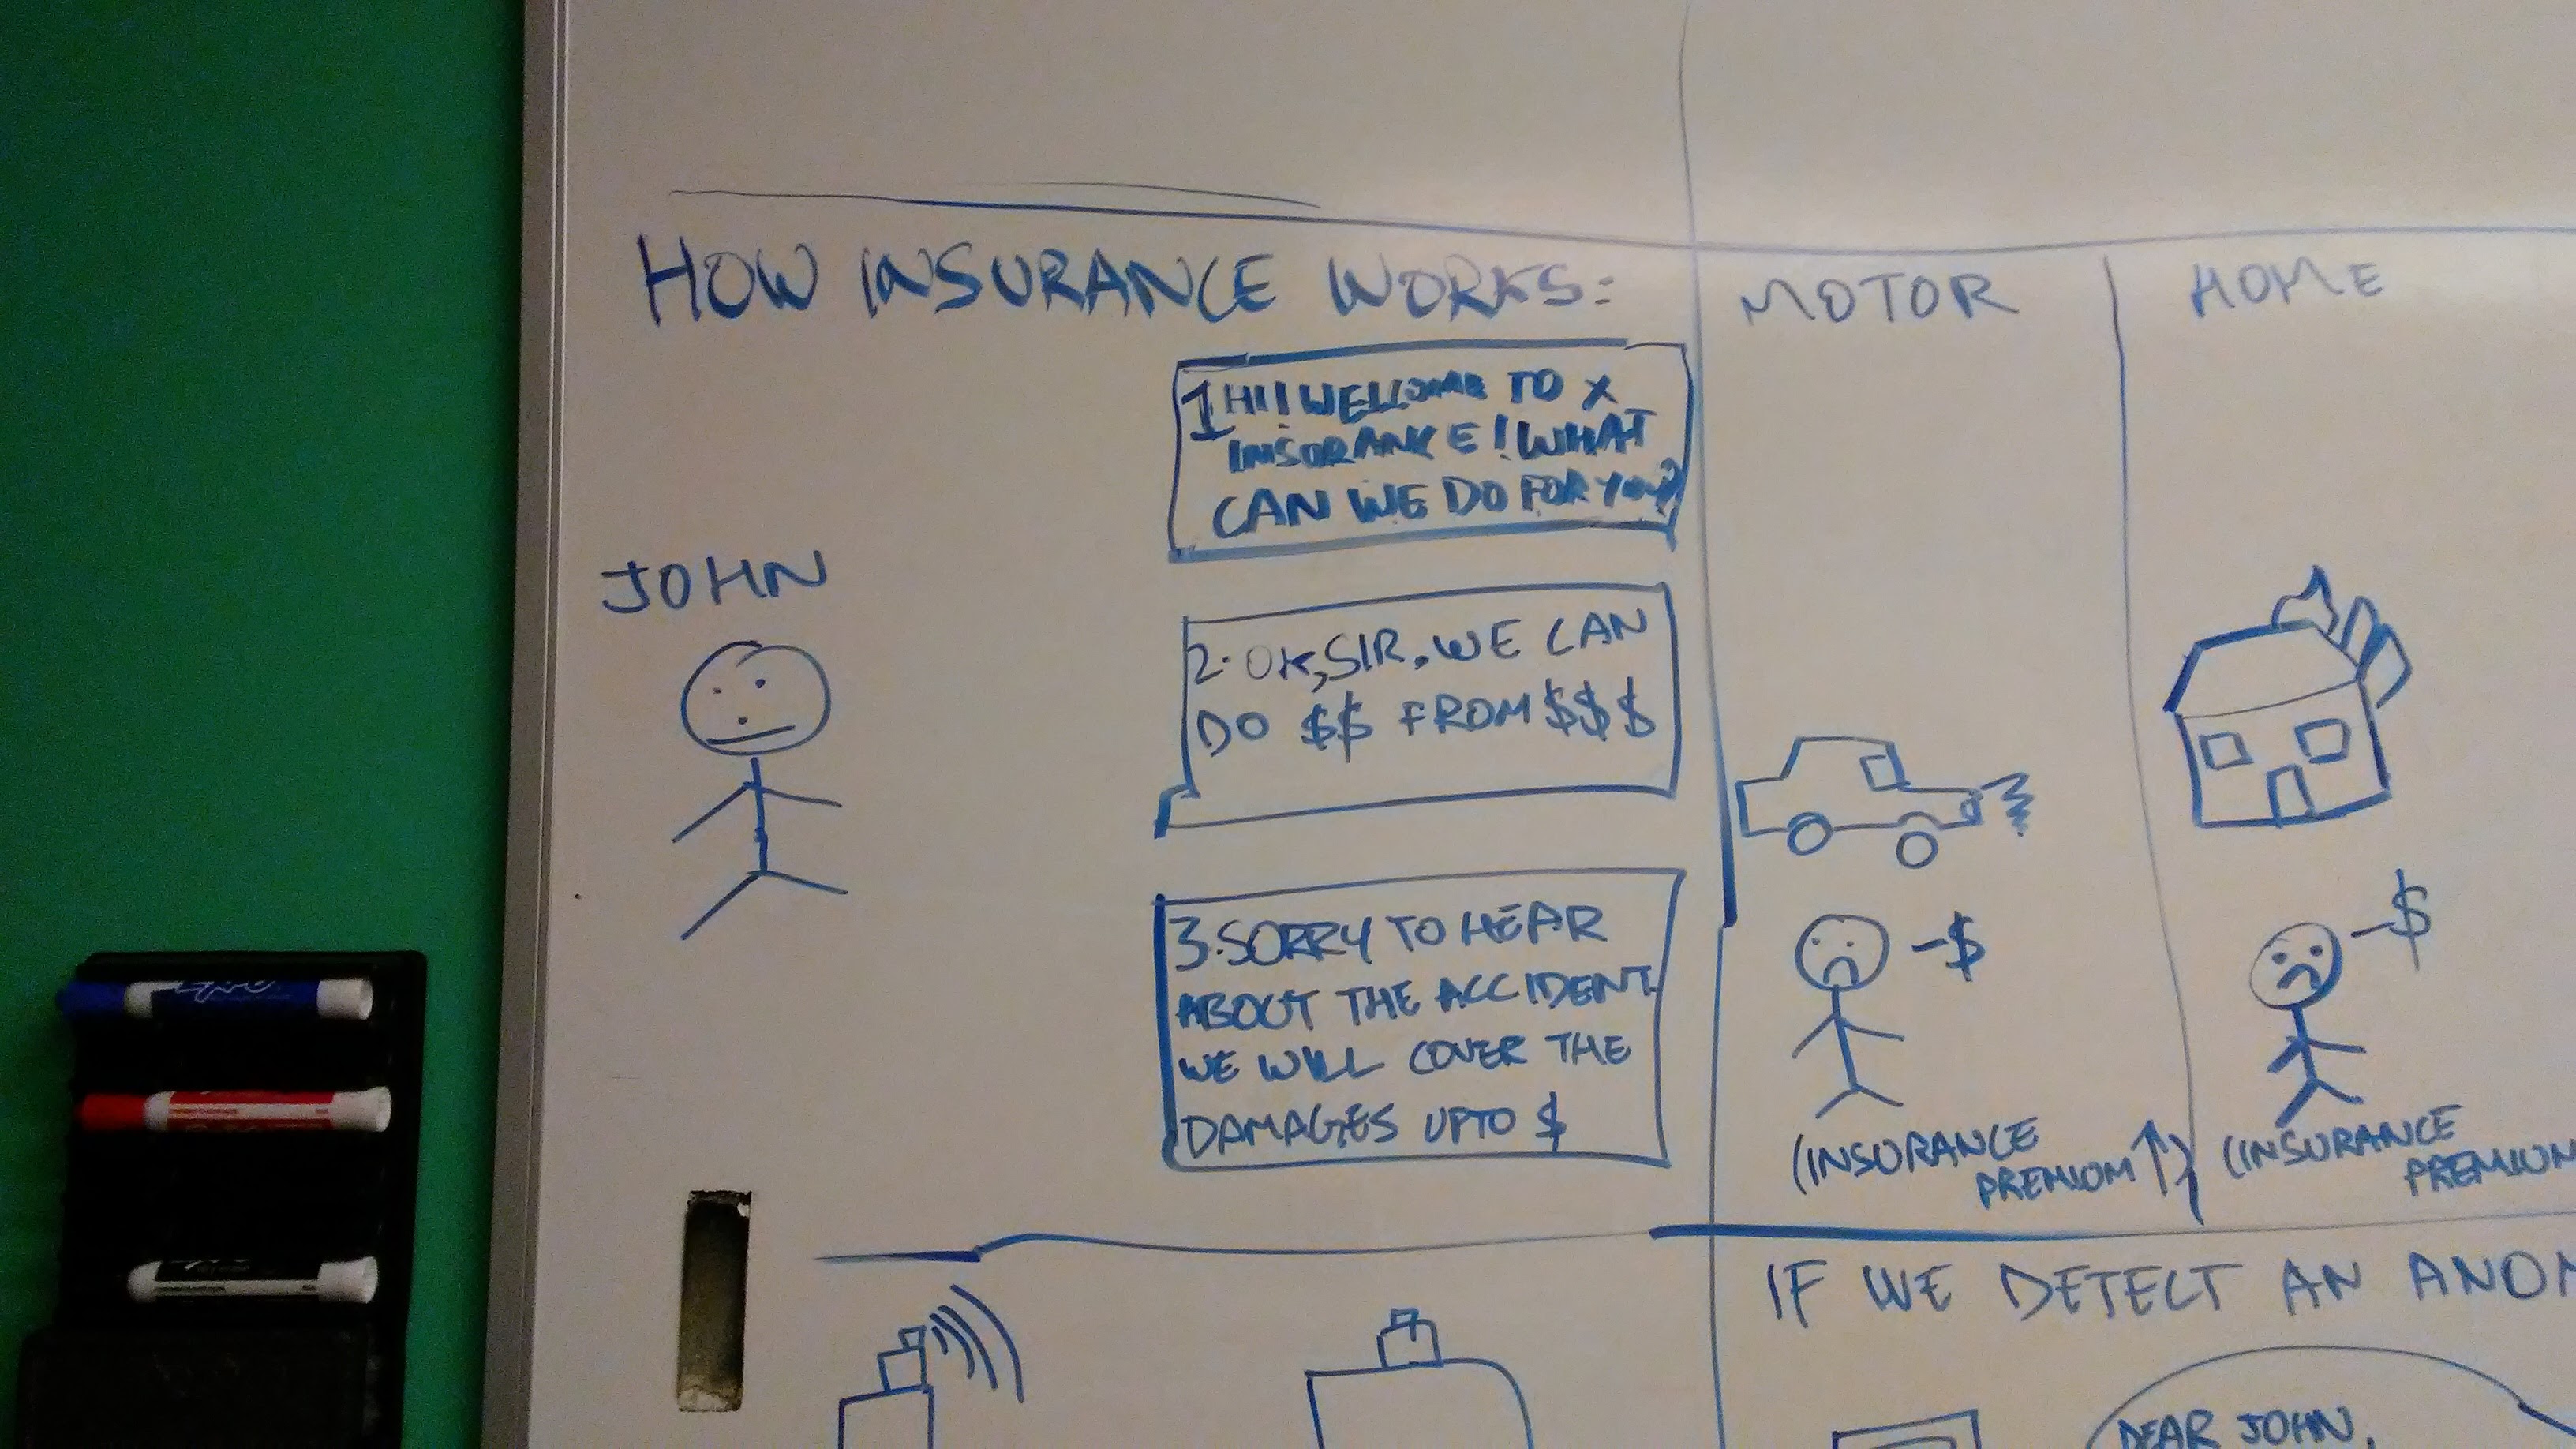 HOW INSURANCE WORKS:
JOHN
1 HI! WELCOME TO X
INSURANCE! WHAT
CAN WE DO FOR YOU?
2. OK, SIR. WE CAN
DO $$ FROM $$$
3. SORRY TO HEAR
ABOUT THE ACCIDENT.
WE WILL COVER THE
DAMAGES UPTO $
MOTOR
-$
(INSURANCE
PREMIUM ↑)
HOME
-$
(INSURANCE
PREMIUM
IF WE DETECT AN ANOM
DEAR JOHN,
EXPO